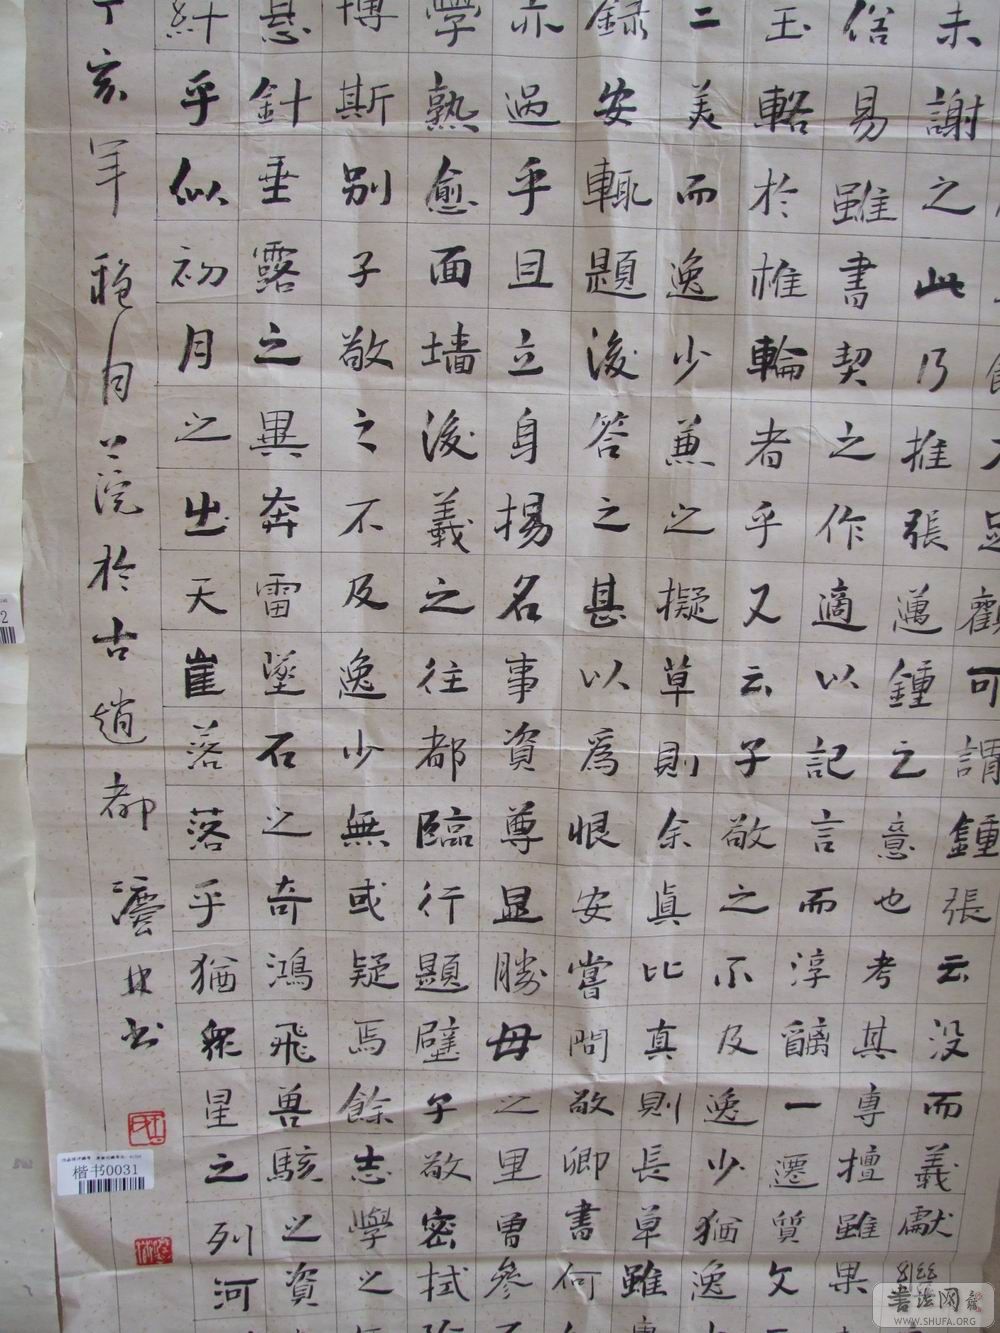 足觀可謂鍾張云没而羲獻繼
未謝之此乃推張邁鍾之意也考其專擅雖果
信易雖書契之作適以記言而淳醨一遷質文
玉輅於椎輪者乎又云子敬之不及逸少猶逸
二美而逸少兼之擬草則余真比真則長草雖
録安輒題後答之甚以爲恨安嘗問敬卿書何
亦過乎且立身揚名事資尊顯勝母之里曾參不
學孰愈面墻後羲之往都臨行題壁子敬密拭
博斯別子敬之不及逸少無或疑焉餘志學之
懸針垂露之異奔雷墜石之奇鴻飛獸駭之資
纤乎似初月之出天崖落落乎猶衆星之列河
丁亥年龝月上浣於古趙都澐林书
楷书0031
书法网
WWW.SHUFA.ORG